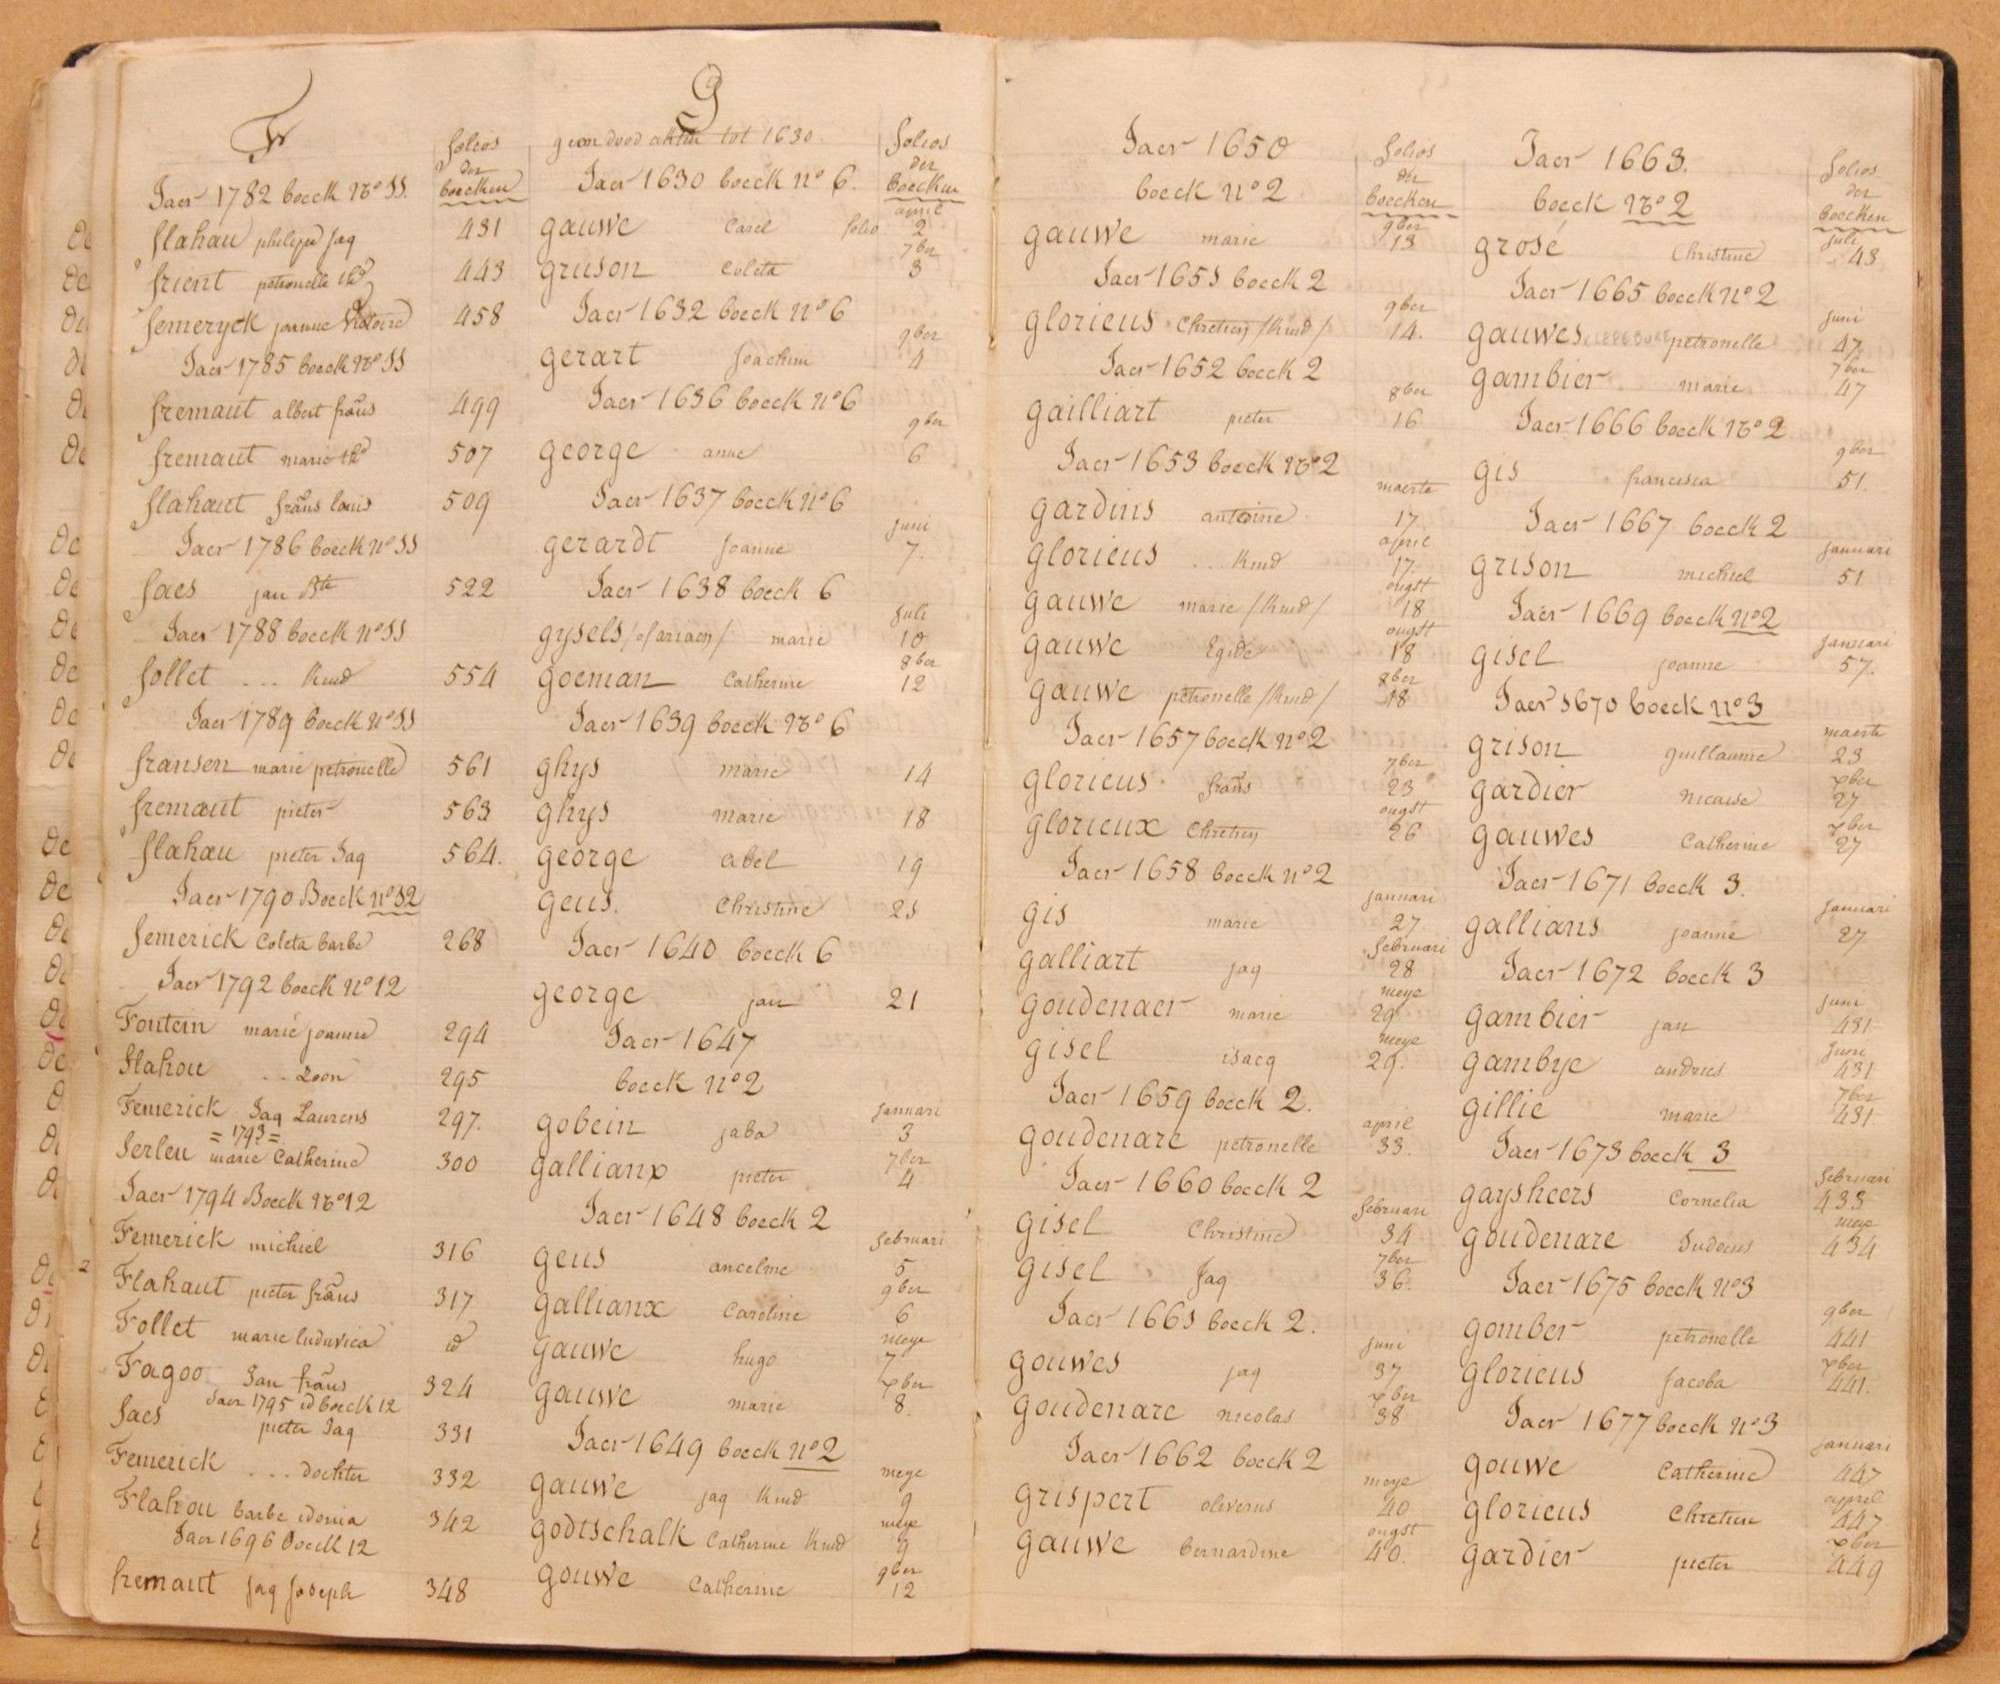 F
folios
der
boecken
Jaer 1782 boeck No 11.
flahau philippe Jaq 431
frient petronelle 443
femeryck joanne Victoire 458
Jaer 1785 boeck No 11
fremaut albert frans 499
fremaut marie 507
flahaut frans louis 509
Jaer 1786 boeck No 11
faes jan Bte 522
Jaer 1788 boeck No 11
follet ... Kind 554
Jaer 1789 boeck No 11
fransen marie petronelle 561
fremaut pieter 563
flahau pieter Jaq 564.
Jaer 1790 Boeck No 12
femerick Coleta barbe 268
Jaer 1792 boeck No 12
Fontein marie joanne 294
flahou ... Zoon 295
Femerick Jaq Laurens 297.
= 1793 =
ferleu marie Catherine 300
Jaer 1794 Boeck No 12
Femerick michiel 316
Flahaut pieter frans 317
Follet marie luduvica id
Fagoo Jan frans 324
Jaer 1795 id boeck 12
faes pieter Jaq 331
Femerick ... dochter 332
Flahou barbe idonia 342
Jaer 1696 boeck 12
fremaut jaq joseph 348
G
geen dood akten tot 1630.
folios
der
boecken
Jaer 1630 boeck No 6.
april
gauwe Carel folio 2
7ber
gruson Coleta 3
Jaer 1632 boeck No 6
9ber
gerart joachim 4
Jaer 1636 boeck No 6
9ber
george anne 6
Jaer 1637 boeck No 6
juni
gerardt joanne 7.
Jaer 1638 boeck 6
juli
gysels /of arriaen/ marie 10
8ber
goeman Catherine 12
Jaer 1639 boeck No 6
ghys marie 14
ghys marie 18
george abel 19
geus. Christine 21
Jaer 1640 boeck 6
george jan 21
Jaer 1647
boeck No 2
januari
gobein jaba 3
7ber
gallianx pieter 4
Jaer 1648 boeck 2
februari
geus ancelme 5
9ber
gallianx Caroline 6
meye
gauwe hugo 7
xber
gauwe marie 8.
Jaer 1649 boeck No 2
meye
gauwe jaq Kind 9
meye
godtschalk Catherine Kind 9
9ber
gouwe Catherine 12
Jaer 1650
boeck No 2
folios
der
boecken
9ber
gauwe marie 13
Jaer 1651 boeck 2
9ber
glorieus Chretien /Kind/ 14.
Jaer 1652 boeck 2
8ber
gailliart pieter 16
Jaer 1653 boeck No 2
maerte
gardins antoine 17.
april
glorieus ... Kind 17.
ougst
gauwe marie /Kind/ 18
ougst
gauwe Egide 18
8ber
gauwe petronelle /Kind/ 18
Jaer 1657 boeck No 2
7ber
glorieus frans 23
ougst
glorieux Chretien 26
Jaer 1658 boeck No 2
januari
gis marie 27
februari
galliart jaq 28
meye
goudenaer marie 29
meye
gisel isacq 29.
Jaer 1659 boeck 2.
april
goudenare petronelle 33.
Jaer 1660 boeck 2
februari
gisel Christine 34
7ber
gisel Jaq 36.
Jaer 1661 boeck 2.
juni
gouwes jaq 37
xber
goudenare nicolas 38
Jaer 1662 boeck 2
meye
grispert oliverus 40
ougst
gauwe bernardine 40.
Jaer 1663.
boeck No 2
folios
der
boecken
juli
grosé Christine 43
Jaer 1665 boeck No 2
juni
gauwes petronelle 47
7ber
gambier marie 47
Jaer 1666 boeck No 2
9ber
gis francisca 51.
Jaer 1667 boeck 2
januari
grison michiel 51
Jaer 1669 boeck No 2
januari
gisel joanne 57.
Jaer 1670 boeck No 3
maerte
grison guillaume 23
xber
gardier nicaise 27
xber
gauwes Catherine 27
Jaer 1671 boeck 3.
januari
gallians joanne 27
Jaer 1672 boeck 3
juni
gambier jan 431
juni
gambye andries 431
7ber
gillie marie 431
Jaer 1673 boeck 3
februari
gaysheers Cornelia 433
meye
goudenare Judocus 434
Jaer 1675 boeck No 3
9ber
gomber petronelle 441
xber
glorieus jacoba 441.
Jaer 1677 boeck No 3
januari
gouwe Catherine 447
april
glorieus Chretien 447
xber
gardier pieter 449